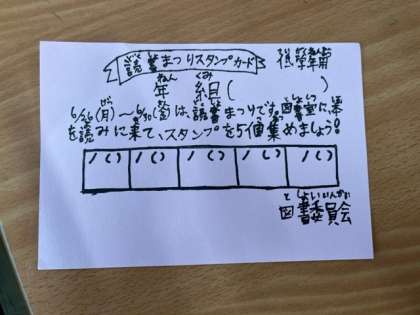 読書まつりスタンプカード 低学年用
ねん くみ
年 組( )
6/26(月)〜6/30(金)は、読書まつりです。図書室に、本
を読みに来て、スタンプを5個集めましょう!
/( ) /( ) /( ) /( ) /( )
としょいいんかい
図書委員会